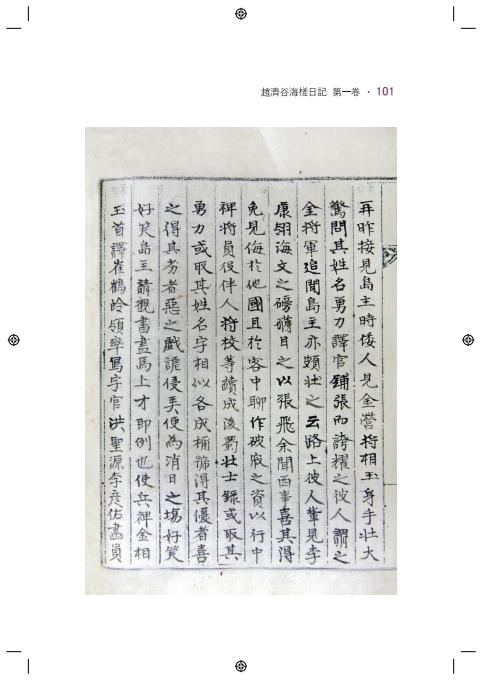 趙濟谷海槎日記 第一卷 · 101
再昨接見島主時倭人見金營將相玉身手壯大
驚問其姓名勇力譯官鋪張而誇耀之彼人謂之
金將軍追聞島主亦頗壯之云路上彼人輩見李
康翎海文之磅礴目之以張飛余聞西事喜其得
免見侮於他國且於客中聊作破寂之資以行中
裨將員役伴人將校等續成後蜀壯士錄或取其
勇力或取其姓名字相似各成稱號得其優者喜
之得其劣者惡之戲謔侵美便為消日之場好笑
好笑島主請觀書畫馬上才即例也使兵裨金相
玉首譯崔鶴岭領率寫字官洪聖源李彦佑畵員